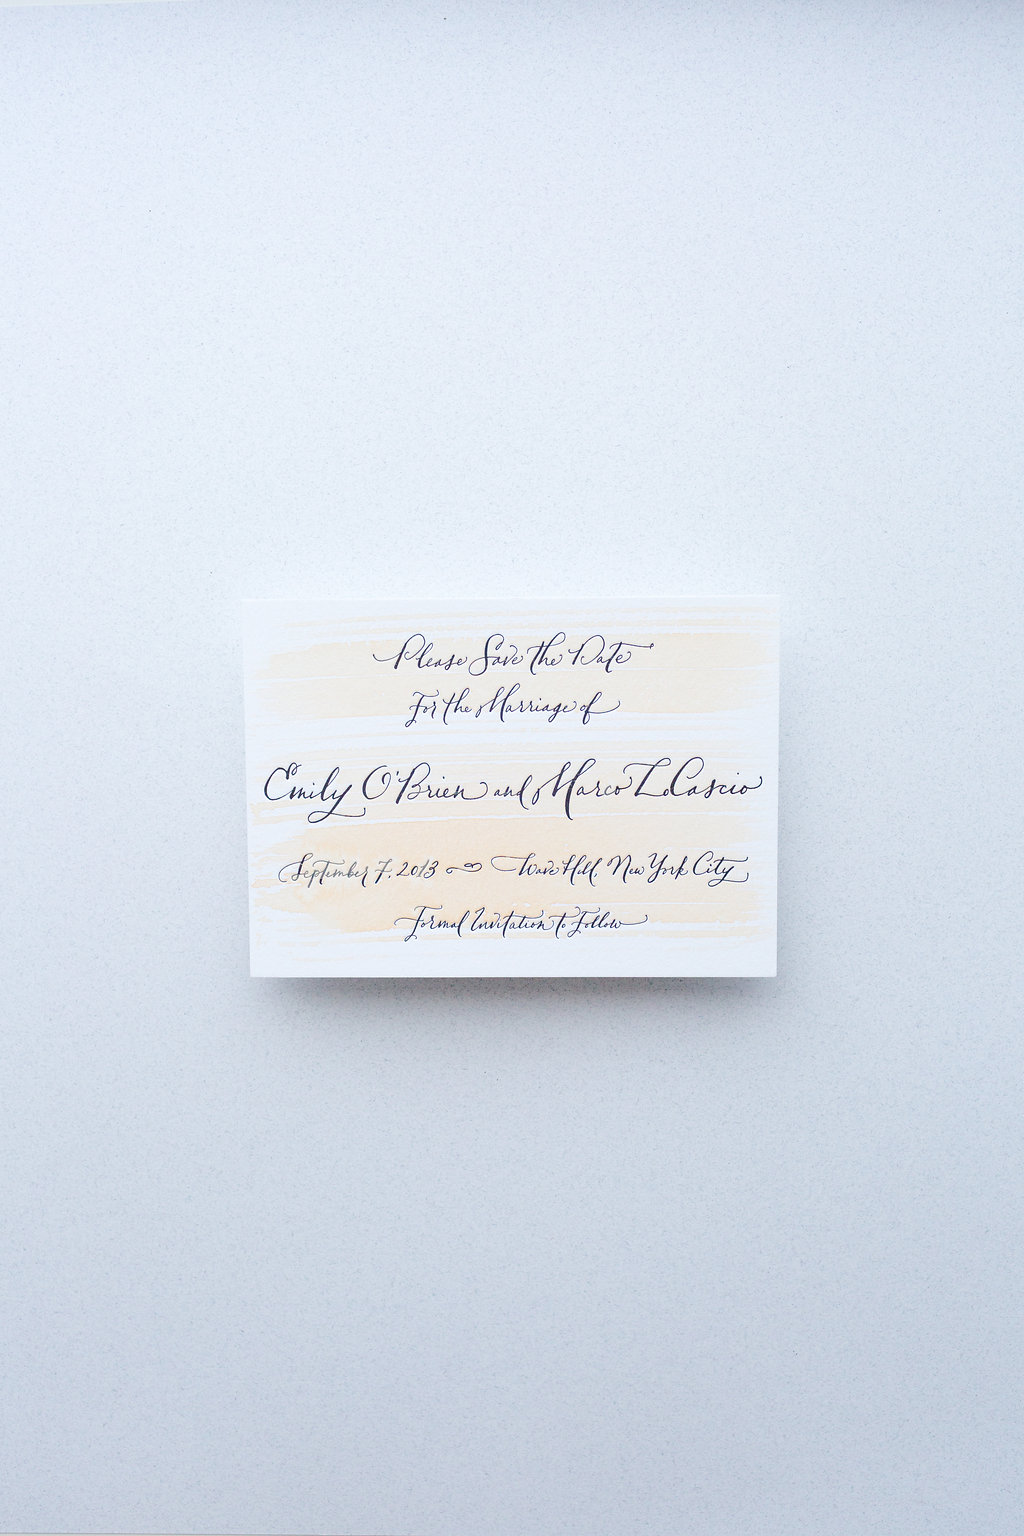 Please Save the Date
For the Marriage of
Emily O'Brien and Marco LoCascio
September 7, 2013 Wave Hill, New York City
Formal Invitation to Follow